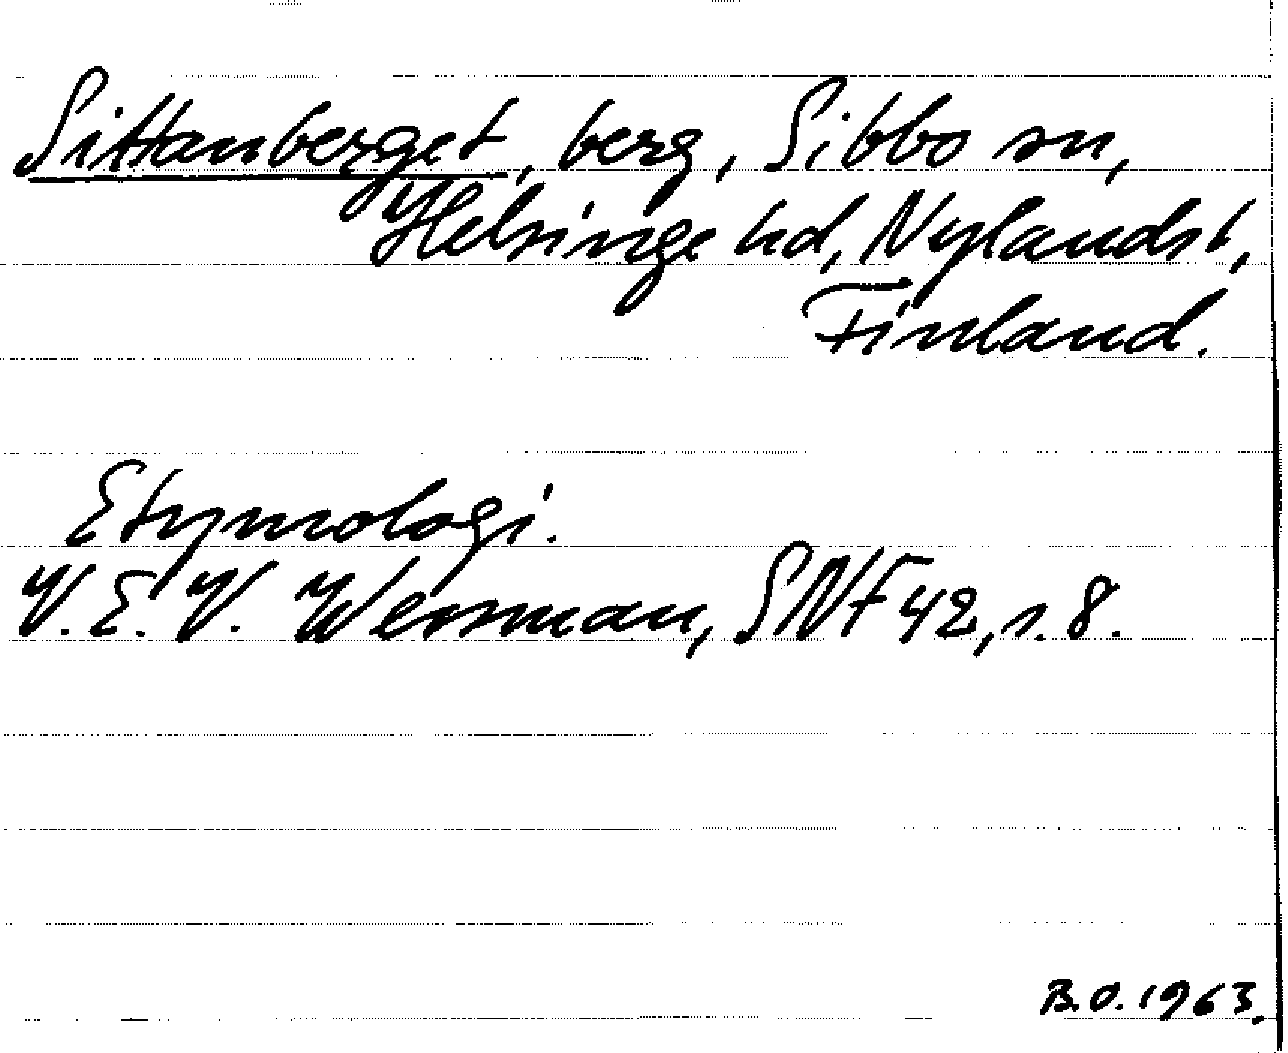 Sittanberget, berg, Sibbo sn,
Helsinge hd, Nylands l,
Finland.
Etymologi.
V. E. V. Wessman, SNF 42, s. 8.
B.O. 1963.